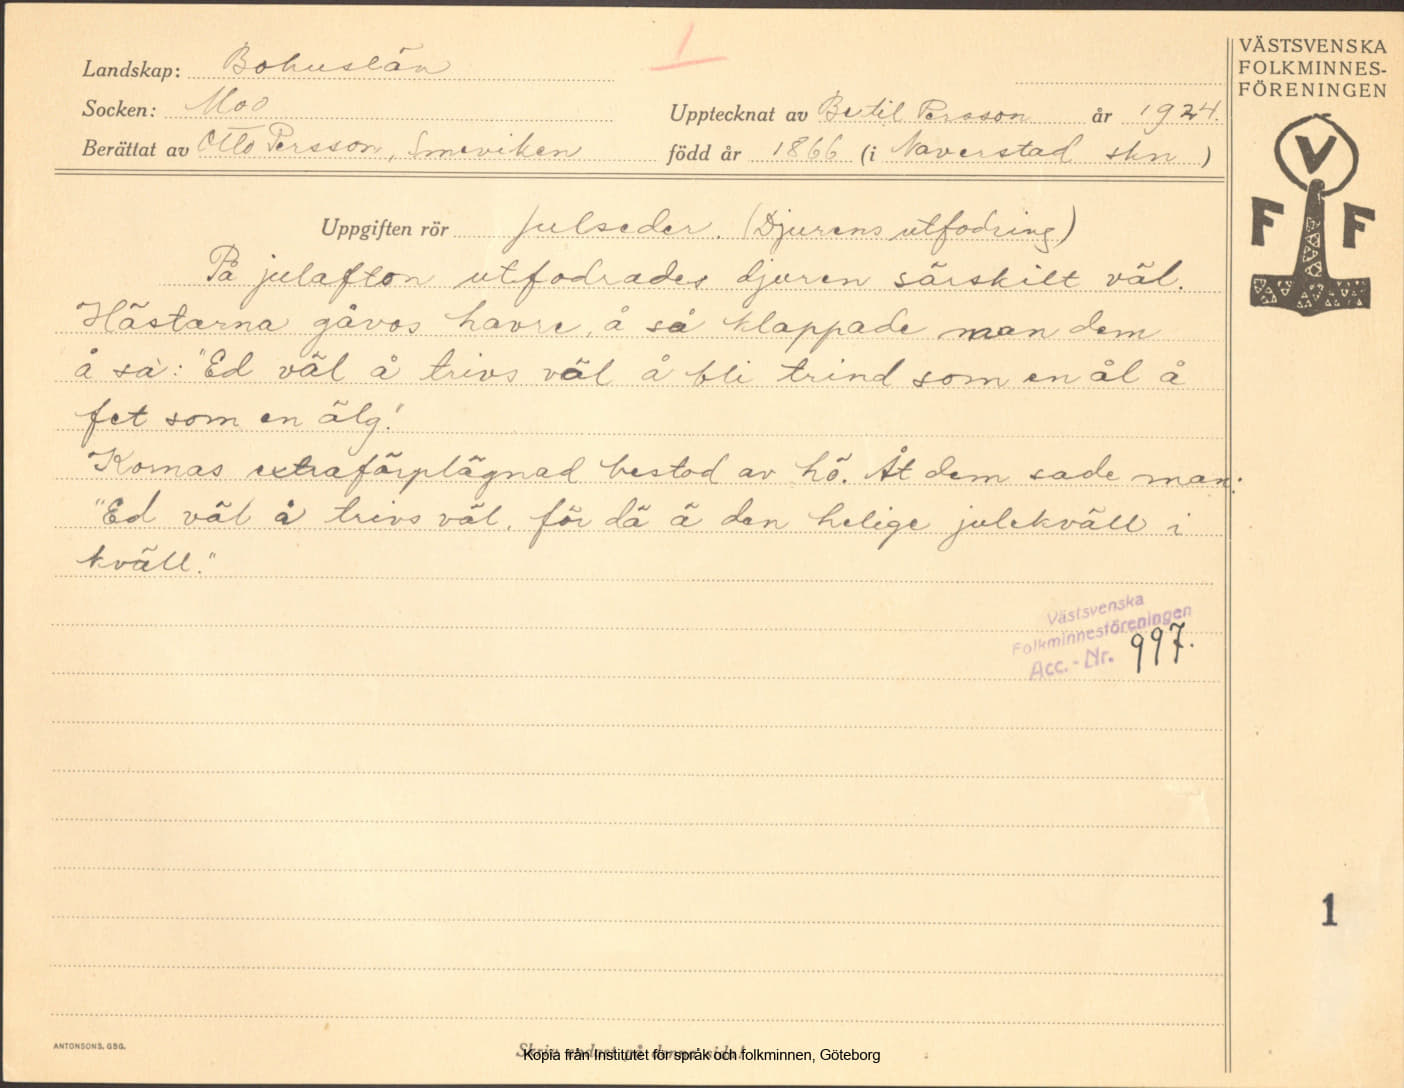 Landskap: Bohuslän
Socken: Mo
Upptecknat av Bertil Persson år 1924.
Berättat av Otto Persson, Smeviken född år 1866 (i Naverstad skn)
VÄSTSVENSKA
FOLKMINNES-
FÖRENINGEN
V
F F
1
Uppgiften rör Julseder. (Djurens utfodring)
På julafton utfodrades djuren särskilt väl.
Hästarna gåvos havre, å så klappade man dem
å sa: "Ed väl å trivs väl å bli trind som en ål å
fet som en älg!
Kornas extraförplägnad bestod av hö. Åt dem sade man:
"Ed väl å trivs väl, för dä ä den helige julekväll i
kväll."
Västsvenska
Folkminnesföreningen
Acc.-Nr. 997.
1
ANTONSONS, GBG.
Skriv endast på denna sida!
Kopia från Institutet för språk och folkminnen, Göteborg